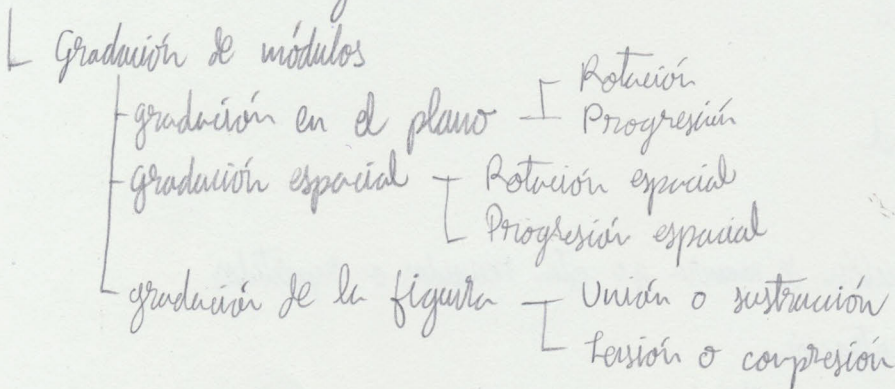 Gradación de módulos
gradación en el plano
Rotación
Progresión
gradación espacial
Rotación espacial
Progresión espacial
gradación de la figura
Unión o sustracción
Tensión o compresión